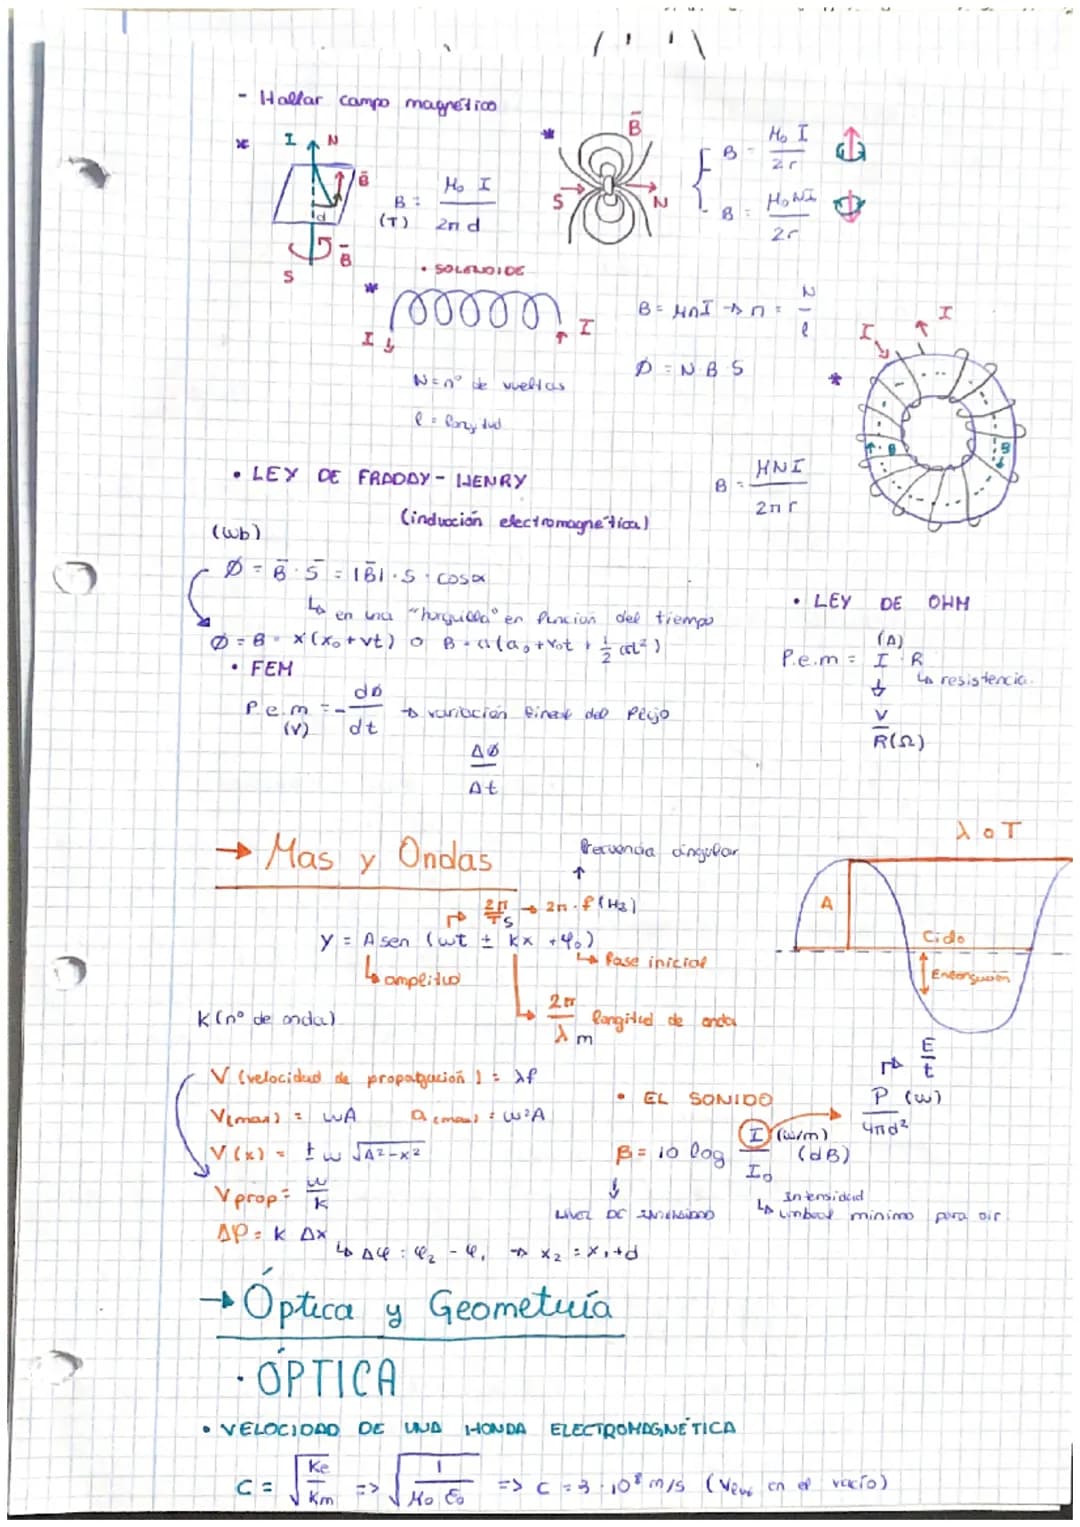 - Hallar campo magnético
* I N
B̄
d
B̄
S
B = μ₀ I / 2π d
(T)
* B̄
S N
{ B = μ₀ I / 2r
B = μ₀ N I / 2r
• SOLENOIDE
*
I I
B = μnI → n = N / l
Ø = N·B·S
N = nº de vueltas
l = longitud
* I I
B B
B = μNI / 2π r
• LEY DE FRADAY - HENRY
(inducción electromagnética)
(wb)
Ø = B̄ · S̄ = |B̄| · S · cosα
↳ en una "horquilla" en función del tiempo
Ø = B · x (x₀ + vt) o B ·
• FEM
f.e.m = - dØ / dt → variación lineal del flujo
(V)
ΔØ / Δt
• LEY DE OHM
(A)
f.e.m = I · R
↳ resistencia
V / R(Ω)
→ Mas y Ondas
frecuencia angular
2π / T s → 2π · f (Hz)
y = A sen (ωt ± kx + φ₀)
↳ amplitud
↳ fase inicial
2π / λ m longitud de onda
K (nº de onda)
λ o T
A
Ciclo
Elongación
V (velocidad de propagación) = λf
V(max) = ωA a (max) = ω²A
V(x) = ± ω √A² - x²
Vprop = ω / k
ΔP = K Δx
↳ Δφ = φ₂ - φ₁ → x₂ = x₁ + d
• EL SONIDO
E / t
P (w) / 4πd²
β = 10 log I / I₀ (w/m) (dB)
NIVEL DE INTENSIDAD
Intensidad
↳ umbral mínimo para oir
→ Óptica y Geometría
· ÓPTICA
• VELOCIDAD DE UNA HONDA ELECTROMAGNÉTICA
C = √Ke / Km => √1 / μ₀ ε₀ => C = 3·10⁸ m/s (en el vacío)